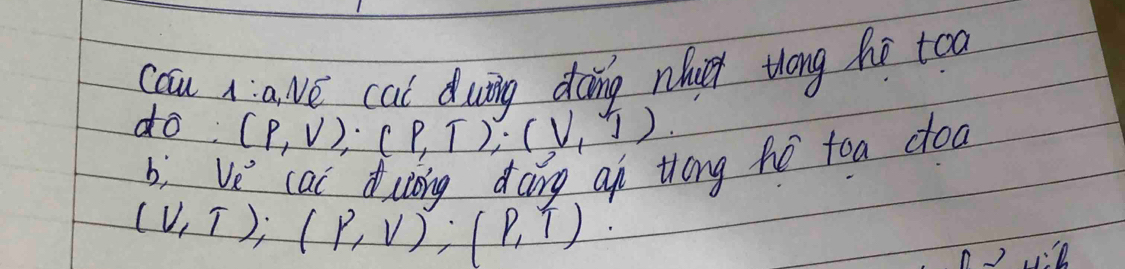 Câu 1: a, Vẽ các đường đẳng nhiệt trong hệ tọa
độ : (P, V); (P, T); (V, T).
b, Vẽ các đường đẳng áp trong hệ tọa đọa
(V, T); (P, V); (P, T).